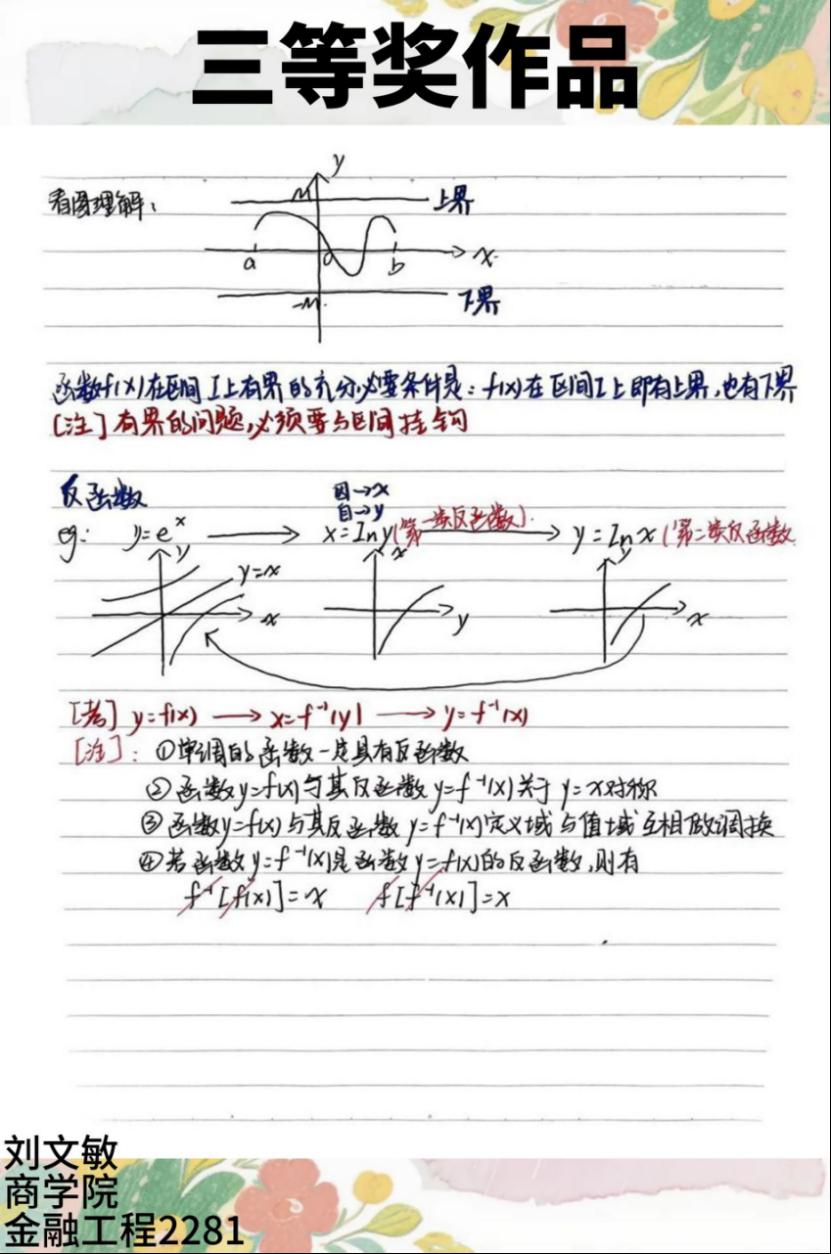 三等奖作品
看图理解:
y
M
上界
a
0
b
x
-M
下界
函数f(x)在区间I上有界的充分必要条件是:f(x)在区间I上即有上界,也有下界
[注]有界的问题,必须要与区间挂钩
反函数
因→x
自→y
eg: y=e^x → x=lny(第一类反函数) → y=lnx(第二类反函数
y
y=x
x
x
y
y
x
[考] y=f(x) → x=f⁻¹(y) → y=f⁻¹(x)
[注]:①单调的函数一定具有反函数
②函数y=f(x)与其反函数y=f⁻¹(x)关于y=x对称
③函数y=f(x)与其反函数y=f⁻¹(x)定义域与值域互相做调换
④若函数y=f⁻¹(x)是函数y=f(x)的反函数,则有
f⁻¹[f(x)]=x f[f⁻¹(x)]=x
刘文敏
商学院
金融工程2281